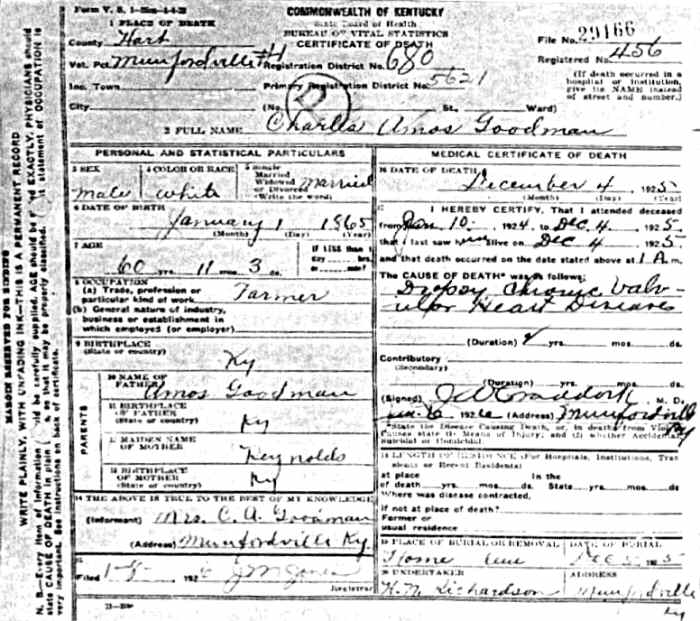 Form V. S. 1
COMMONWEALTH OF KENTUCKY
State Board of Health
BUREAU OF VITAL STATISTICS
CERTIFICATE OF DEATH
1 PLACE OF DEATH
County Hart
File No. 29166
Vot. Pct. Munfordville #4 Registration District No. 680
Registered No. 456
Inc. Town Primary Registration District No. 5621
(If death occurred in a
hospital or institution,
give its NAME instead
of street and number.)
City (No. St., Ward)
2
2 FULL NAME Charles Amos Goodman
PERSONAL AND STATISTICAL PARTICULARS
3 SEX
male
4 COLOR OR RACE
white
5 Single
Married
Widowed
or Divorced
(Write the word)
Married
6 DATE OF BIRTH
January 1 1865
(Month) (Day) (Year)
7 AGE
60 yrs. 11 mos. 3 ds.
If LESS than 1
day hrs.
or min?
8 OCCUPATION
(a) Trade, profession or
particular kind of work Farmer
(b) General nature of industry,
business or establishment in
which employed (or employer)
9 BIRTHPLACE
(State or country)
Ky
PARENTS
10 NAME OF
FATHER
Amos Goodman
11 BIRTHPLACE
OF FATHER
(State or country)
Ky
12 MAIDEN NAME
OF MOTHER
Reynolds
13 BIRTHPLACE
OF MOTHER
(State or country)
Ky
14 THE ABOVE IS TRUE TO THE BEST OF MY KNOWLEDGE
(Informant) Mrs. C. A. Goodman
(Address) Munfordville Ky
15
Filed 192
Registrar
MEDICAL CERTIFICATE OF DEATH
16 DATE OF DEATH
December 4, 1925
(Month) (Day) (Year)
17 I HEREBY CERTIFY, That I attended deceased
from Jan 10 1924, to Dec 4, 1925
that I last saw him alive on Dec 4, 1925
and that death occurred on the date stated above at 1 A m.
The CAUSE OF DEATH* was as follows:
Dropsy Chronic Valv-
ular Heart Diseases
(Duration) yrs. mos. ds.
Contributory
(Secondary)
(Duration) yrs. mos. ds.
(Signed) Craddock M. D.
192 (Address) Munfordville Ky
*State the Disease Causing Death, or, in deaths from Violent
Causes state (1) Means of Injury; and (2) whether Accidental,
Suicidal or Homicidal.
18 LENGTH OF RESIDENCE (For Hospitals, Institutions, Transients or Recent Residents)
At place In the
of death yrs. mos. ds. State yrs. mos. ds.
Where was disease contracted,
if not at place of death?
Former or
usual residence
19 PLACE OF BURIAL OR REMOVAL
DATE OF BURIAL
Dec 5 1925
20 UNDERTAKER
Richardson
ADDRESS
Munfordville
Ky
MARGIN RESERVED FOR BINDING
WRITE PLAINLY, WITH UNFADING INK—THIS IS A PERMANENT RECORD
N. B.—Every item of information should be carefully supplied. AGE should be EXACTLY. PHYSICIANS should
state CAUSE OF DEATH in plain so that it may be properly classified. statement of OCCUPATION is
very important. See instructions on back of certificate.